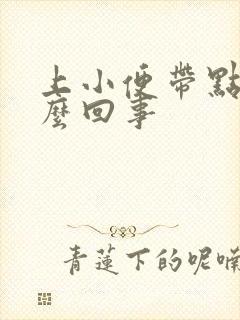 上小便帶點
麼回事
青蓮下的呢喃